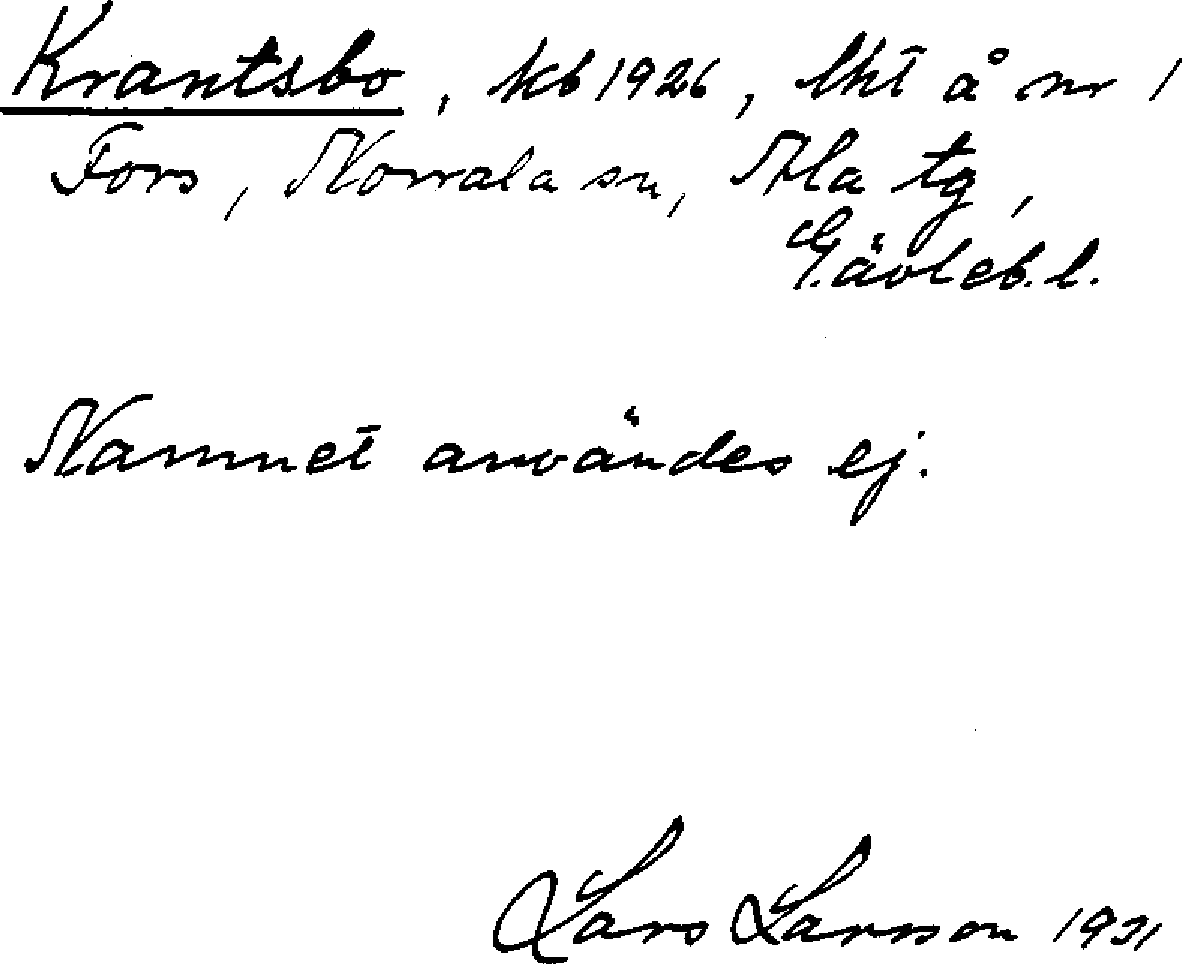 Krantsbo, kb 1926, lht å nr 1
Fors, Norrala sn, Ala tg,
Gävleb. l.
Namnet användes ej.
Lars Larsson 1931